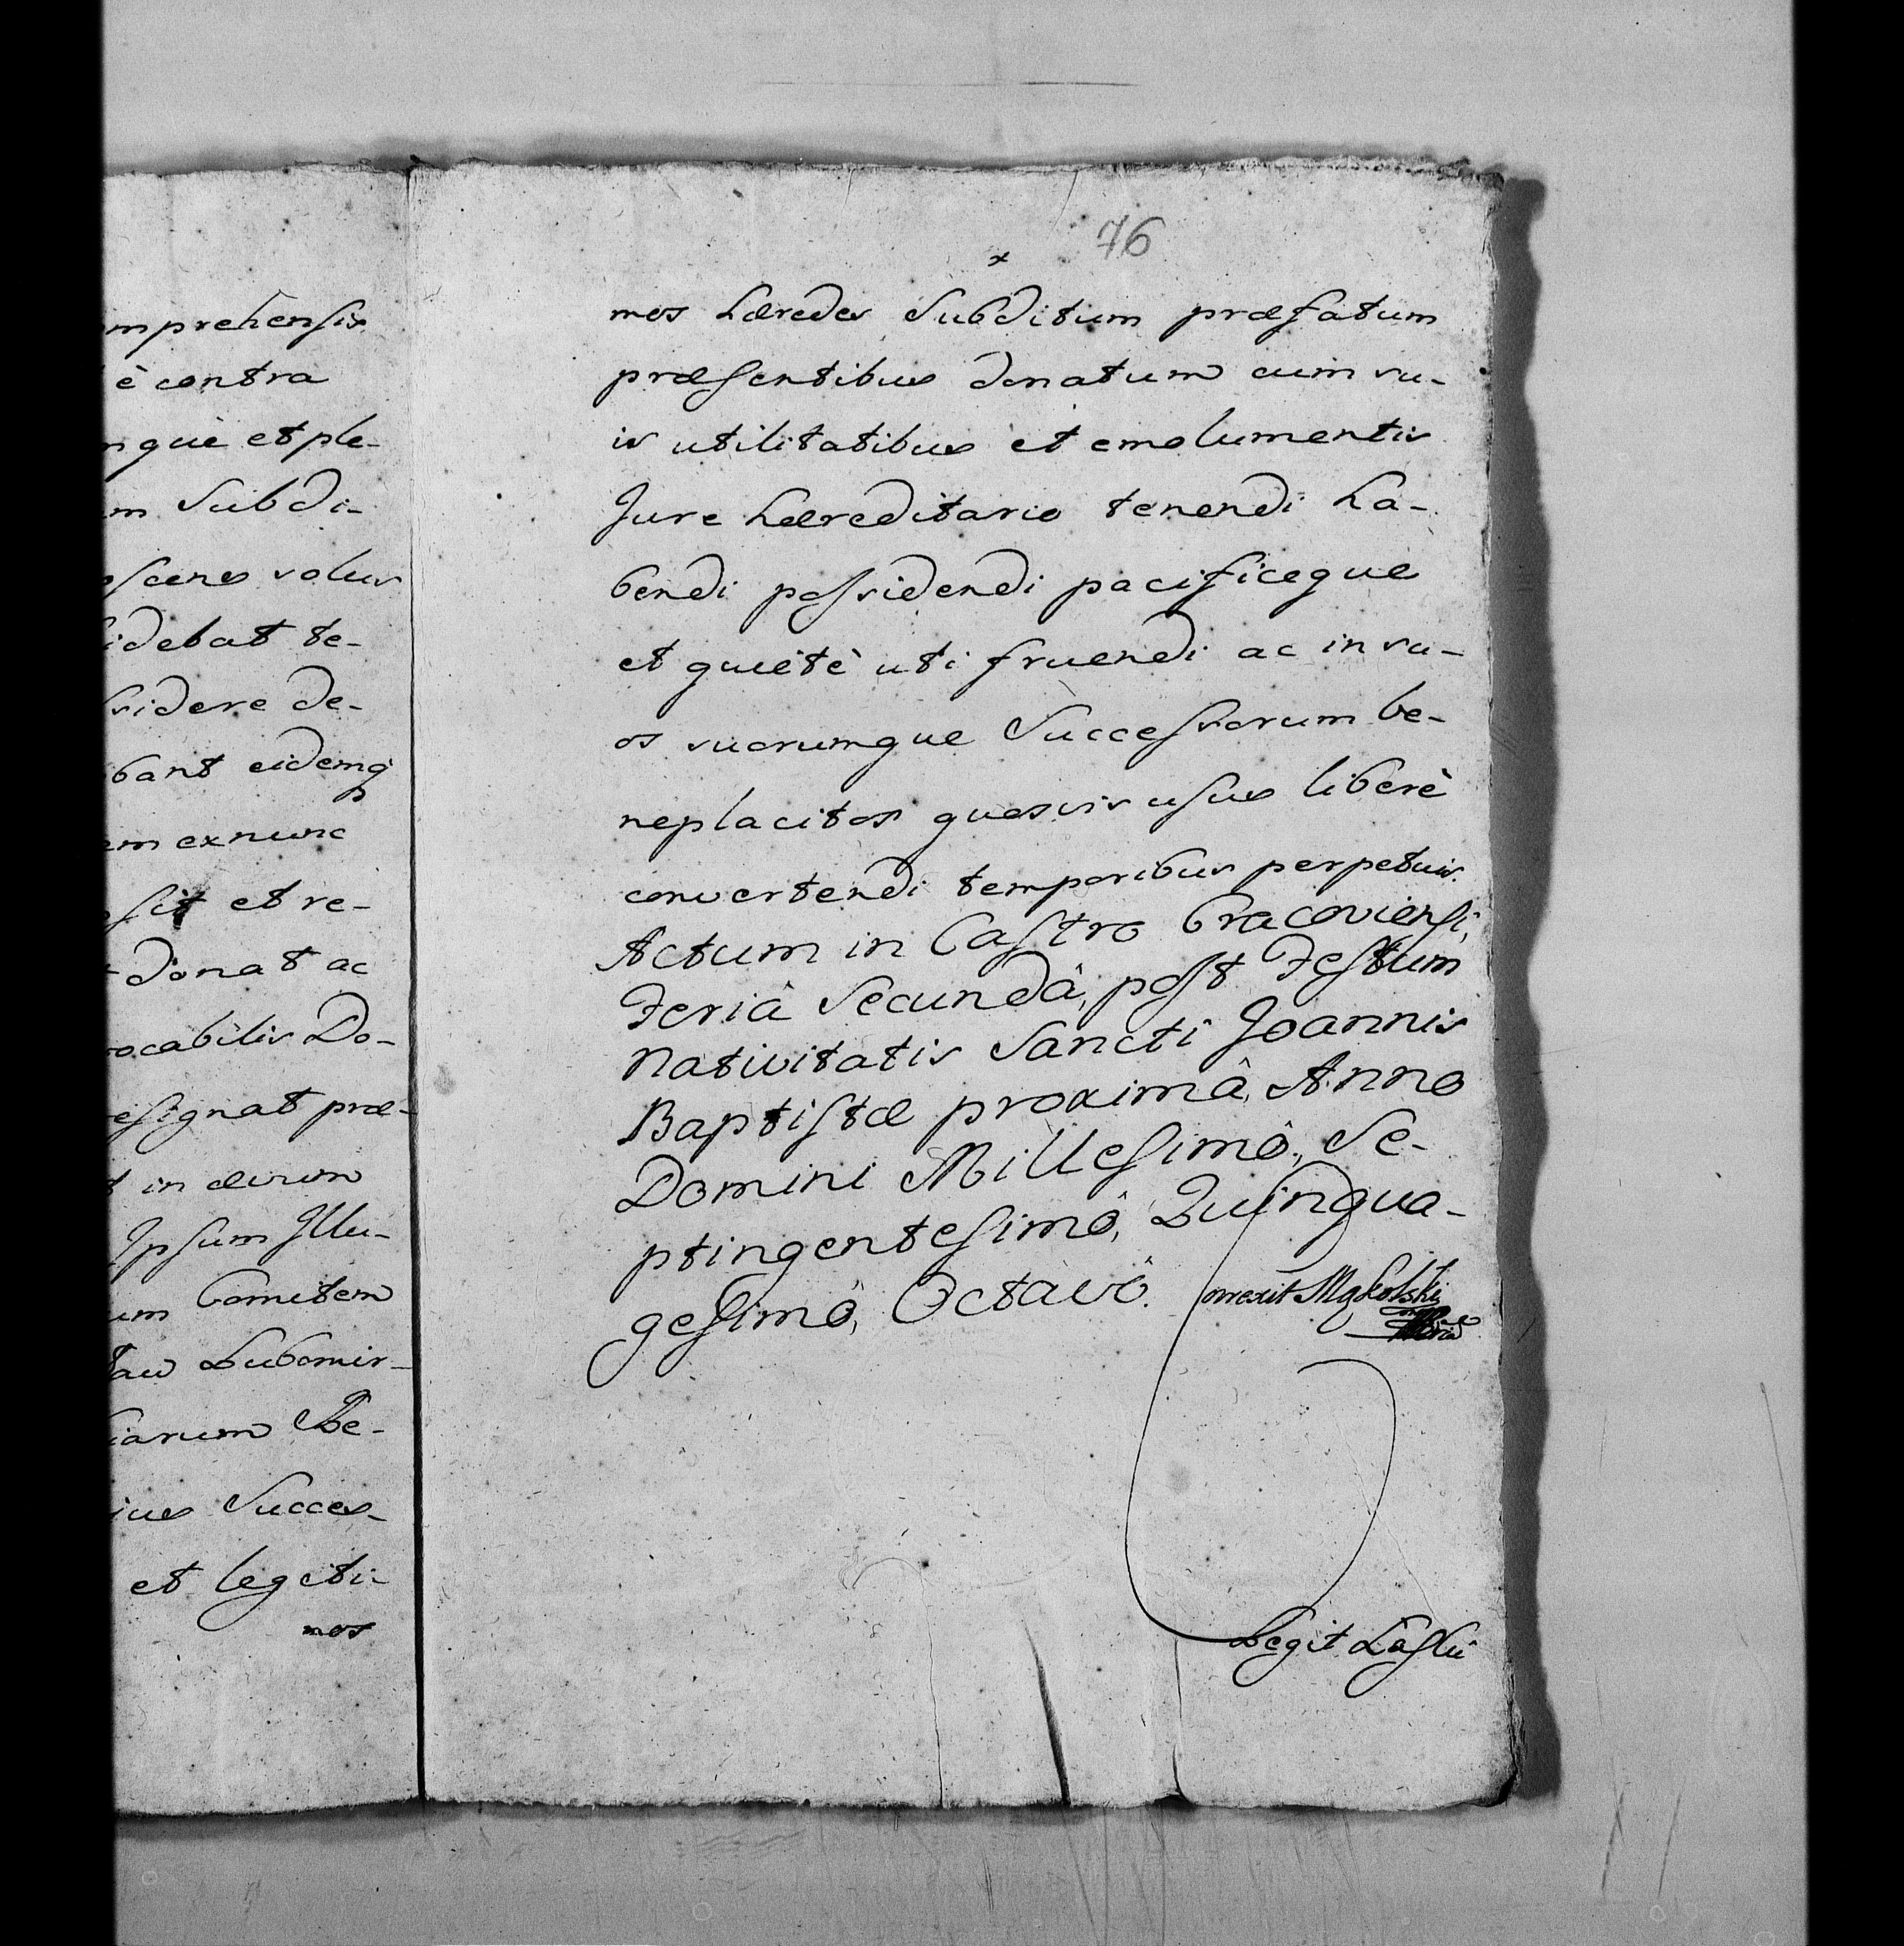 mprehensis
è contra
nque et ple-
m Subdi-
scens salus
idebat te-
sidere de-
bant eidemq
em exnunc
sit et re-
donat ac
ocabilis Do-
esignat præ-
t in ævum
Ipsum Illu-
um Comitem
Lubomir-
iarum Be-
Succes-
et legiti-
mos
76
x
mos hæredes Subditum præfatum
præsentibus donatum cum su-
is utilitatibus et emolumentis
Jure hæreditario tenendi ha-
bendi possidendi pacificeque
et quietè uti fruendi ac in su-
os suorumque Successorum be-
neplacitos quosvis usus liberè
convertendi temporibus perpetuis.
Actum in Castro Cracoviensi,
Feriâ Secundâ, post Festum
Nativitatis Sancti Joannis
Baptistæ proximâ, Anno
Domini Millesimô, Se-
ptingentesimô, Quinqua-
gesimô, Octavô.
Correxit Mąkolski
Legit Laski